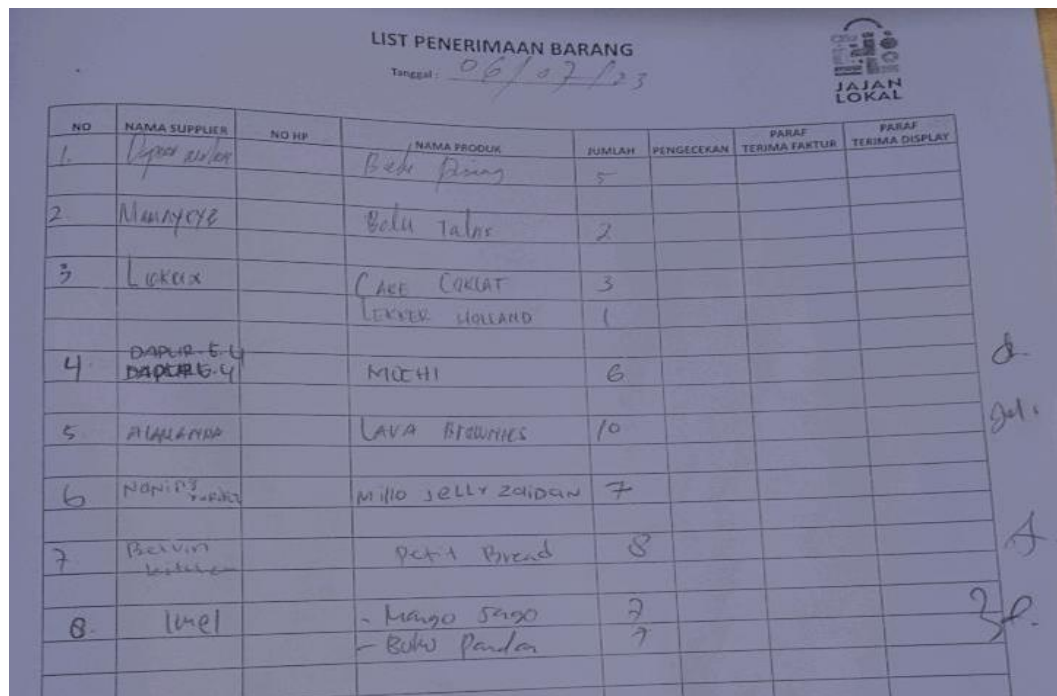 LIST PENERIMAAN BARANG
Tanggal: 06/07/23
JAJAN
LOKAL
NO NAMA SUPPLIER NO HP NAMA PRODUK JUMLAH PENGECEKAN PARAF TERIMA FAKTUR PARAF TERIMA DISPLAY
1. Dapur 5
2. Bolu Talas 2
3 CAKE COKLAT 3
LEKKER HOLLAND 1
DAPUR E.4
4. DAPUR E.4 MOCHI 6
5. LAVA BROWNIES 10
6 Noning Millo Jelly Zaidan 7
7 Belvin Petit Bread 8
kitchen
8. Imel - Mango Sago 7
- Buko Pandan 7